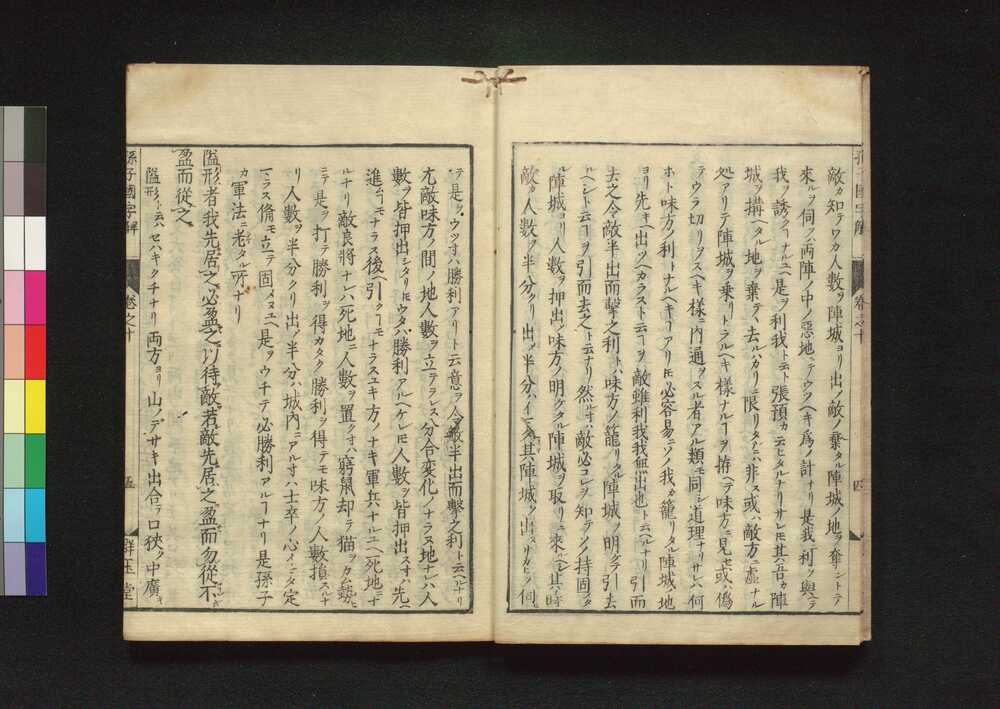 敵カ知テワカ人數ヲ陣城ヨリ出ノ敵ノ棄タル陣城ノ地ヲ奪ントテ
來ルヲ伺フ両陣ノ中ノ惡地ニテウツヘキ為ノ計ナリ是我ニ利ヲ與ヘテ
我ヲ誘クヿナルユヘ是ヲ利我ト云ト張預カ云ヒタルナリサレモ其吾カ陣
城ヲ搆ヘタル地ヲ棄テ去ルハカリニ限リタルヿニハ非ス或ハ敵方ニ虚ナル
処アリテ陣城ヲ乗リトラルヘキ様ナルヿヲ拵ヘテ味方ニ見セ或ハ偽
テウラ切リヲスヘキ様ニ内通ヲスル者アル類モ同シ道理ナリサレハ何
ホト味方ノ利トナルヘキヿアリトモ必容易ニソノ我カ籠リタル陣城ノ地
ヨリ先キヘ出ツヘカラスト云ヿヲ敵雖利我我無出也ト云ヘルナリ引而
去之令敵半出而擊之利トハ味方ノ籠リタル陣城ヲ明ケテ引去
ルヘシト云ヿヲ引而去之ト云ナリ然ルキハ敵必コレヲ知テソノ持固メタ
ル陣城ヨリ人數ヲ押出ノ味方ノ明ケタル陣城ヲ取リニ來ルヘシ其時
敵カ人數ヲ半分クリ出ノ半分ハイマタ其陣城ヲ出キリカヌルヲ伺
孫子國字解
卷之十
四
テ是ヲウツキハ勝利アリト云意ヲ令敵半出而擊之利ト云ヘルナリ
尤敵味方ノ間ノ地人數ヲ立テラレス分合変化ノナラヌ地ナレハ人
數ヲ皆押出シタリトモウタハ勝利アルヘケレトモ人數ヲ皆押出スキハ先ヘ
進ムヿモナラス後ヘ引クヿモナラスユキ方ノナキ軍兵ナルユヘ死地ニナ
ルナリ敵良將ナレハ死地ニ人數ヲ置クキハ窮鼠却テ猫ヲカム勢ヒ
ニテ是ヲ打テ勝利ヲ得カタク勝利ヲ得テモ味方ノ人數損スルナ
リ人數ヲ半分クリ出ノ半分ハ城内ニアルキハ士卒ノ心イマタ定
マラス備モ立テ固メヌユヘ是ヲウチテ必勝利アルヿナリ是孫子
カ軍法ニ老タル所ナリ
隘形者我先居之必盈之以待敵若敵先居之盈而勿從不
盈而從之
隘形ト云ハセハキクチナリ両方ヨリ山ノデサキ出合テ口狹ク中廣キ
孫子國字解
卷之十
五
群玉堂